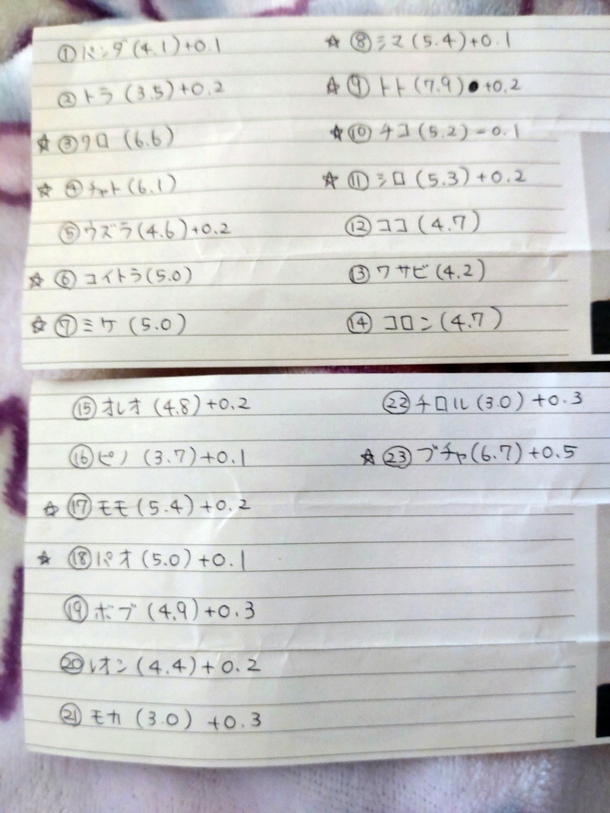 ①パンダ(4.1)+0.1
②トラ(3.5)+0.2
☆③クロ(6.6)
☆④チャト(6.1)
⑤ウズラ(4.6)+0.2
☆⑥コイトラ(5.0)
☆⑦ミケ(5.0)
☆⑧シマ(5.4)+0.1
☆⑨トト(7.9)+0.2
☆⑩チコ(5.2)-0.1
☆⑪シロ(5.3)+0.2
⑫ココ(4.7)
⑬ワサビ(4.2)
⑭コロン(4.7)
⑮オレオ(4.8)+0.2
⑯ピノ(3.7)+0.1
☆⑰モモ(5.4)+0.2
☆⑱パオ(5.0)+0.1
⑲ボブ(4.9)+0.3
⑳レオン(4.4)+0.2
㉑モカ(3.0)+0.3
㉒チロル(3.0)+0.3
☆㉓ブチャ(6.7)+0.5